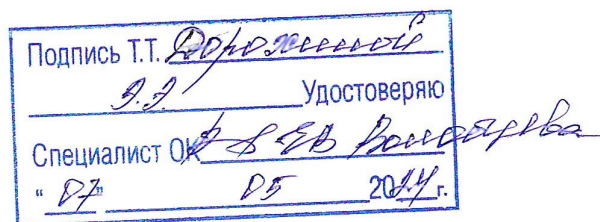 Подпись Т.Т. Дорохиной
Э.Э. Удостоверяю
Специалист ОК ЕВ
" 07 " 05 2024 г.